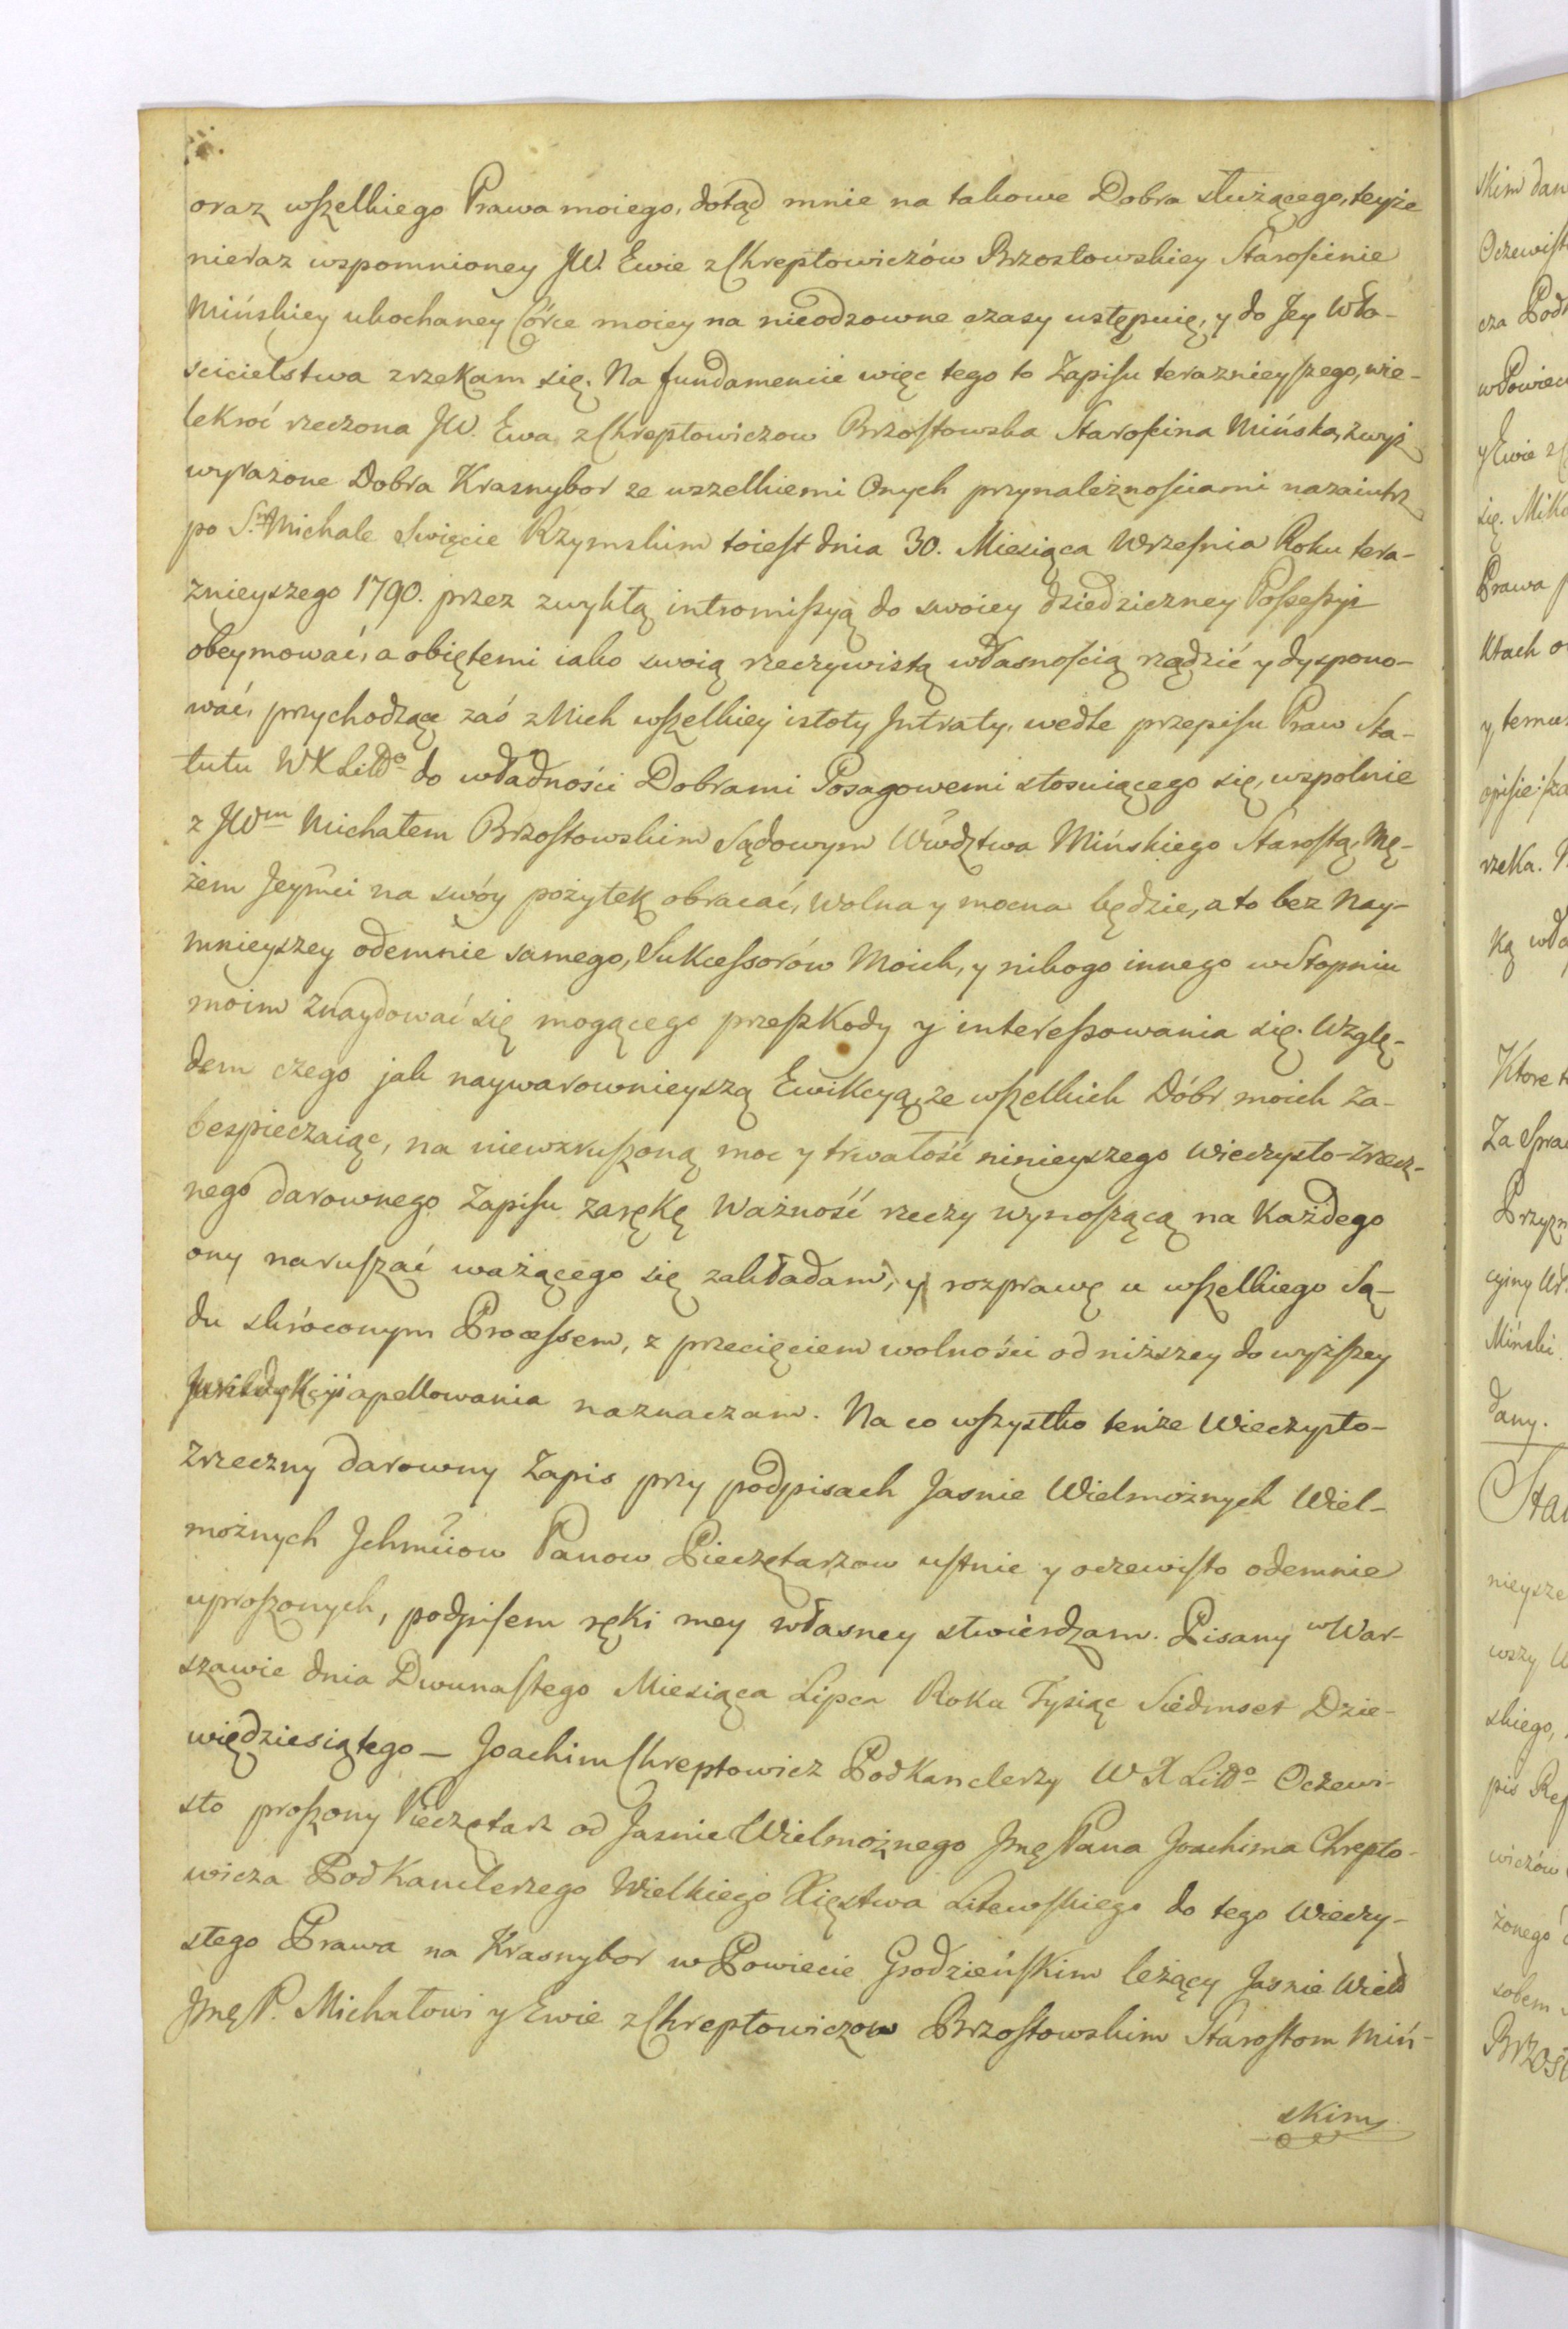 oraz wszelkiego Prawa moiego, dotąd mnie na takowe Dobra służącego, teyże
nieraz wspomnioney JW. Ewie z Chreptowiczów Brzostowskiey Starościnie
Mińskiey ukochaney Córce moiey na nieodzowne czasy ustępuię, y do Jey Wła-
scicielstwa zrzekam się. Na fundamencie więc tego to Zapisu teraznieyszego, wie-
lekroć rzeczona JW. Ewa z Chreptowiczow Brzostowska Starościna Mińska, zwyż
wyrażone Dobra Krasnybor ze wszelkiemi Onych przynależnościami nazaiutrz
po S. Michale Swięcie Rzymskim toiest dnia 30. Miesiąca Września Roku tera-
znieyszego 1790. przez zwykłą intromissyą do swoiey dziedziczney Possessyi
obeymować, a obiętemi iako swoią rzeczywistą własnością rządzić y dyspono-
wać, przychodzące zaś z Nich wszelkiey istoty Jntraty, wedle przepisu Praw Sta-
tutu WXLittº do władności Dobrami Posagowemi stosuiącego się, wspolnie
z JWm Michałem Brzostowskim Sądowym Wwdztwa Mińskiego Starostą, Mę-
żem Jeymci na swóy pożytek obracać, wolna y mocna będzie, a to bez Nay-
mnieyszey odemnie samego, Sukcessorów Moich, y nikogo innego w Stopniu
moim znaydować się mogącego przeszkody y interessowania się. Wzglę-
dem czego jak naywarownieyszą Ewikcyą, ze wszelkich Dóbr moich za-
bespieczaiąc, na niewzruszoną moc y trwałość ninieyszego wieczysto-zrzecz-
nego darownego Zapisu zarękę Ważność rzeczy wynoszącą na każdego
ony naruszać ważącego się zakładam, y rozprawę u wszelkiego Są-
du skróconym Processem, z przecięciem wolności od niższey do wyższey
Juridykcyi apellowania naznaczam. Na co wszystko tenże Wieczysto-
Zrzeczny darowny Zapis przy podpisach Jasnie Wielmożnych Wiel-
możnych Jchmciow Panow Pieczętarzow ustnie y oczewisto odemnie
uproszonych, podpisem ręki mey własney stwierdzam. Pisany w War-
szawie dnia Dwunastego Miesiąca Lipca Roku Tysiąc Siedmset Dzie-
więdziesiątego — Joachim Chreptowicz PodKanclerzy WXLittº Oczewi-
sto proszony Pieczętarz od Jasnie Wielmożnego Jmę Pana Joachima Chrepto-
wicza PodKanclerzego Wielkiego Xięstwa Litewskiego do tego Wieczy-
stego Prawa na Krasnybor w Powiecie Grodzieńskim leżący Jasnie Wield
Jmę P. Michałowi y Ewie z Chreptowiczow Brzostowskim Starostom Miń-
skim